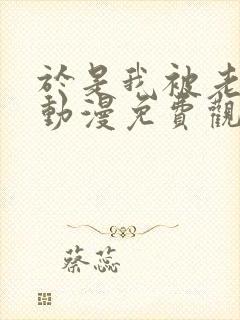 於是我被老
動漫免費觀
蔡蕊